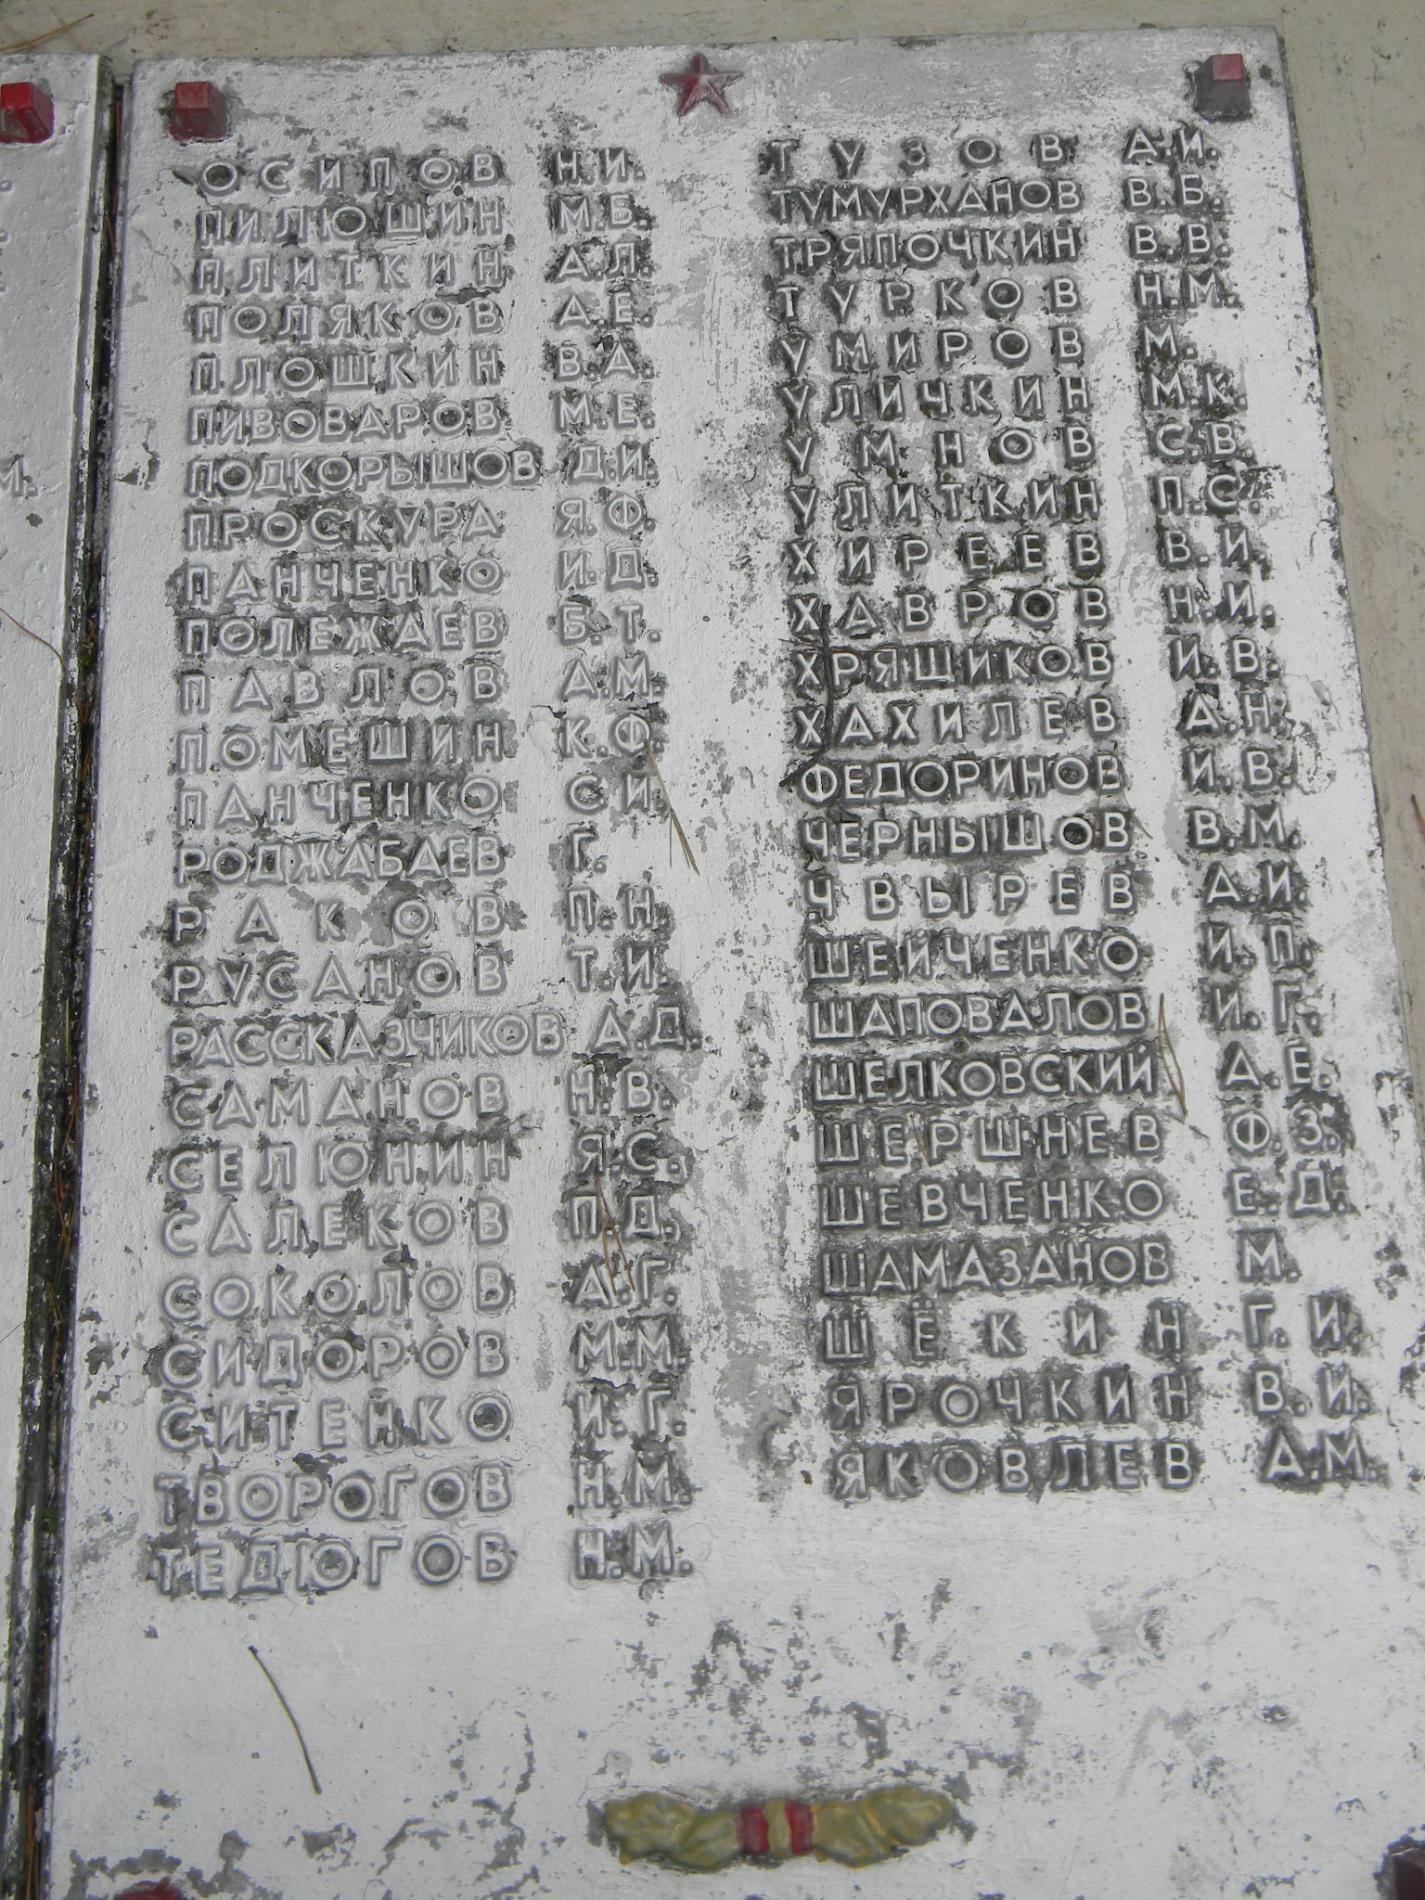 ОСИПОВ Н.И.
ПИЛЮШИН М.Б.
ПЛИТКИН А.Л.
ПОЛЯКОВ А.Е.
ПЛОШКИН В.А.
ПИВОВАРОВ М.Е.
ПОДКОРЫШОВ Д.И.
ПРОСКУРА Я.Ф.
ПАНЧЕНКО И.Д.
ПОЛЕЖАЕВ Б.Т.
ПАВЛОВ А.М.
ПОМЕШИН К.Ф.
ПАНЧЕНКО С.И.
РОДЖАБАЕВ Г.
РАКОВ П.Н.
РУСАНОВ Т.И.
РАССКАЗЧИКОВ А.Д.
САМАНОВ Н.В.
СЕЛЮНИН Я.С.
САЛЕКОВ П.Д.
СОКОЛОВ А.Г.
СИДОРОВ М.М.
СИТЕНКО И.Г.
ТВОРОГОВ Н.М.
ТЕДЮГОВ Н.М.
ТУЗОВ А.И.
ТУМУРХАНОВ В.Б.
ТРЯПОЧКИН В.В.
ТУРКОВ Н.М.
УМИРОВ М.
УЛИЧКИН М.К.
УМНОВ С.В.
УЛИТКИН П.С.
ХИРЕЕВ В.И.
ХАВРОВ Н.И.
ХРЯЩИКОВ И.В.
ХАХИЛЕВ А.Н.
ФЕДОРИНОВ И.В.
ЧЕРНЫШОВ В.М.
ЧВЫРЕВ А.И.
ШЕЙЧЕНКО И.П.
ШАПОВАЛОВ И.Г.
ШЕЛКОВСКИЙ А.Е.
ШЕРШНЕВ Ф.З.
ШЕВЧЕНКО Е.Д.
ШАМАЗАНОВ М.
ШЁКИН Г.И.
ЯРОЧКИН В.И.
ЯКОВЛЕВ А.М.